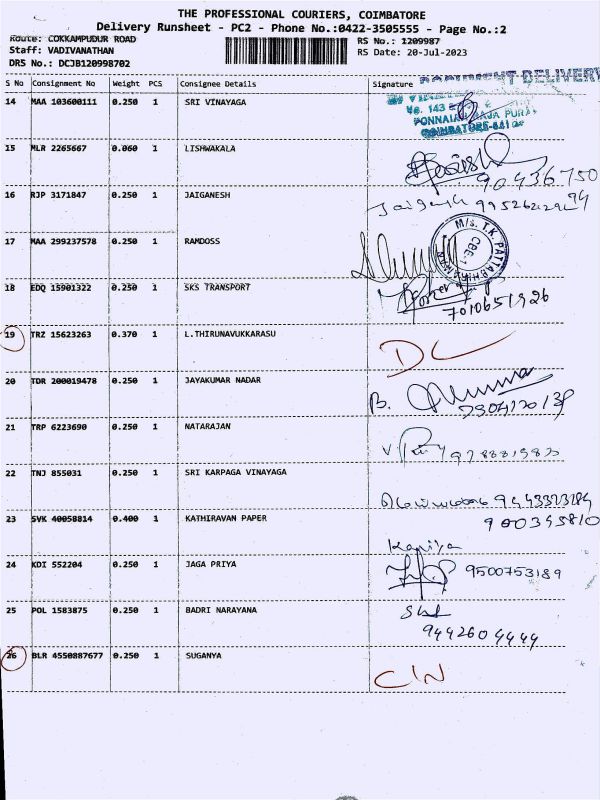 THE PROFESSIONAL COURIERS, COIMBATORE
Delivery Runsheet - PC2 - Phone No.:0422-3505555 - Page No.:2
Route: COKKAMPUDUR ROAD RS No.: 1209987
Staff: VADIVANATHAN RS Date: 20-Jul-2023
DRS No.: DCJB120998702
S No Consignment No Weight PCS Consignee Details Signature
DOCUMENT DELIVERY
14 MAA 103600111 0.250 1 SRI VINAYAGA
No. 143
PONNAIAH RAJA PURAM
COIMBATORE-641 001
15 MLR 2265667 0.060 1 LISHWAKALA
90436750
94
16 RJP 3171847 0.250 1 JAIGANESH
Jaiganesh
17 MAA 299237578 0.250 1 RAMDOSS
M/s. T.K. PATTABHIRAMAN
CBE-1
18 EDQ 15901322 0.250 1 SKS TRANSPORT
7010651926
19 TRZ 15623263 0.370 1 L.THIRUNAVUKKARASU
DC
20 TDR 200019478 0.250 1 JAYAKUMAR NADAR
B.
21 TRP 6223690 0.250 1 NATARAJAN
22 TNJ 855031 0.250 1 SRI KARPAGA VINAYAGA
9443323184
23 SVK 40058814 0.400 1 KATHIRAVAN PAPER
900345810
Kaniya
24 KDI 552204 0.250 1 JAGA PRIYA
9500753189
25 POL 1583875 0.250 1 BADRI NARAYANA
9442604444
26 BLR 4550887677 0.250 1 SUGANYA
CIN